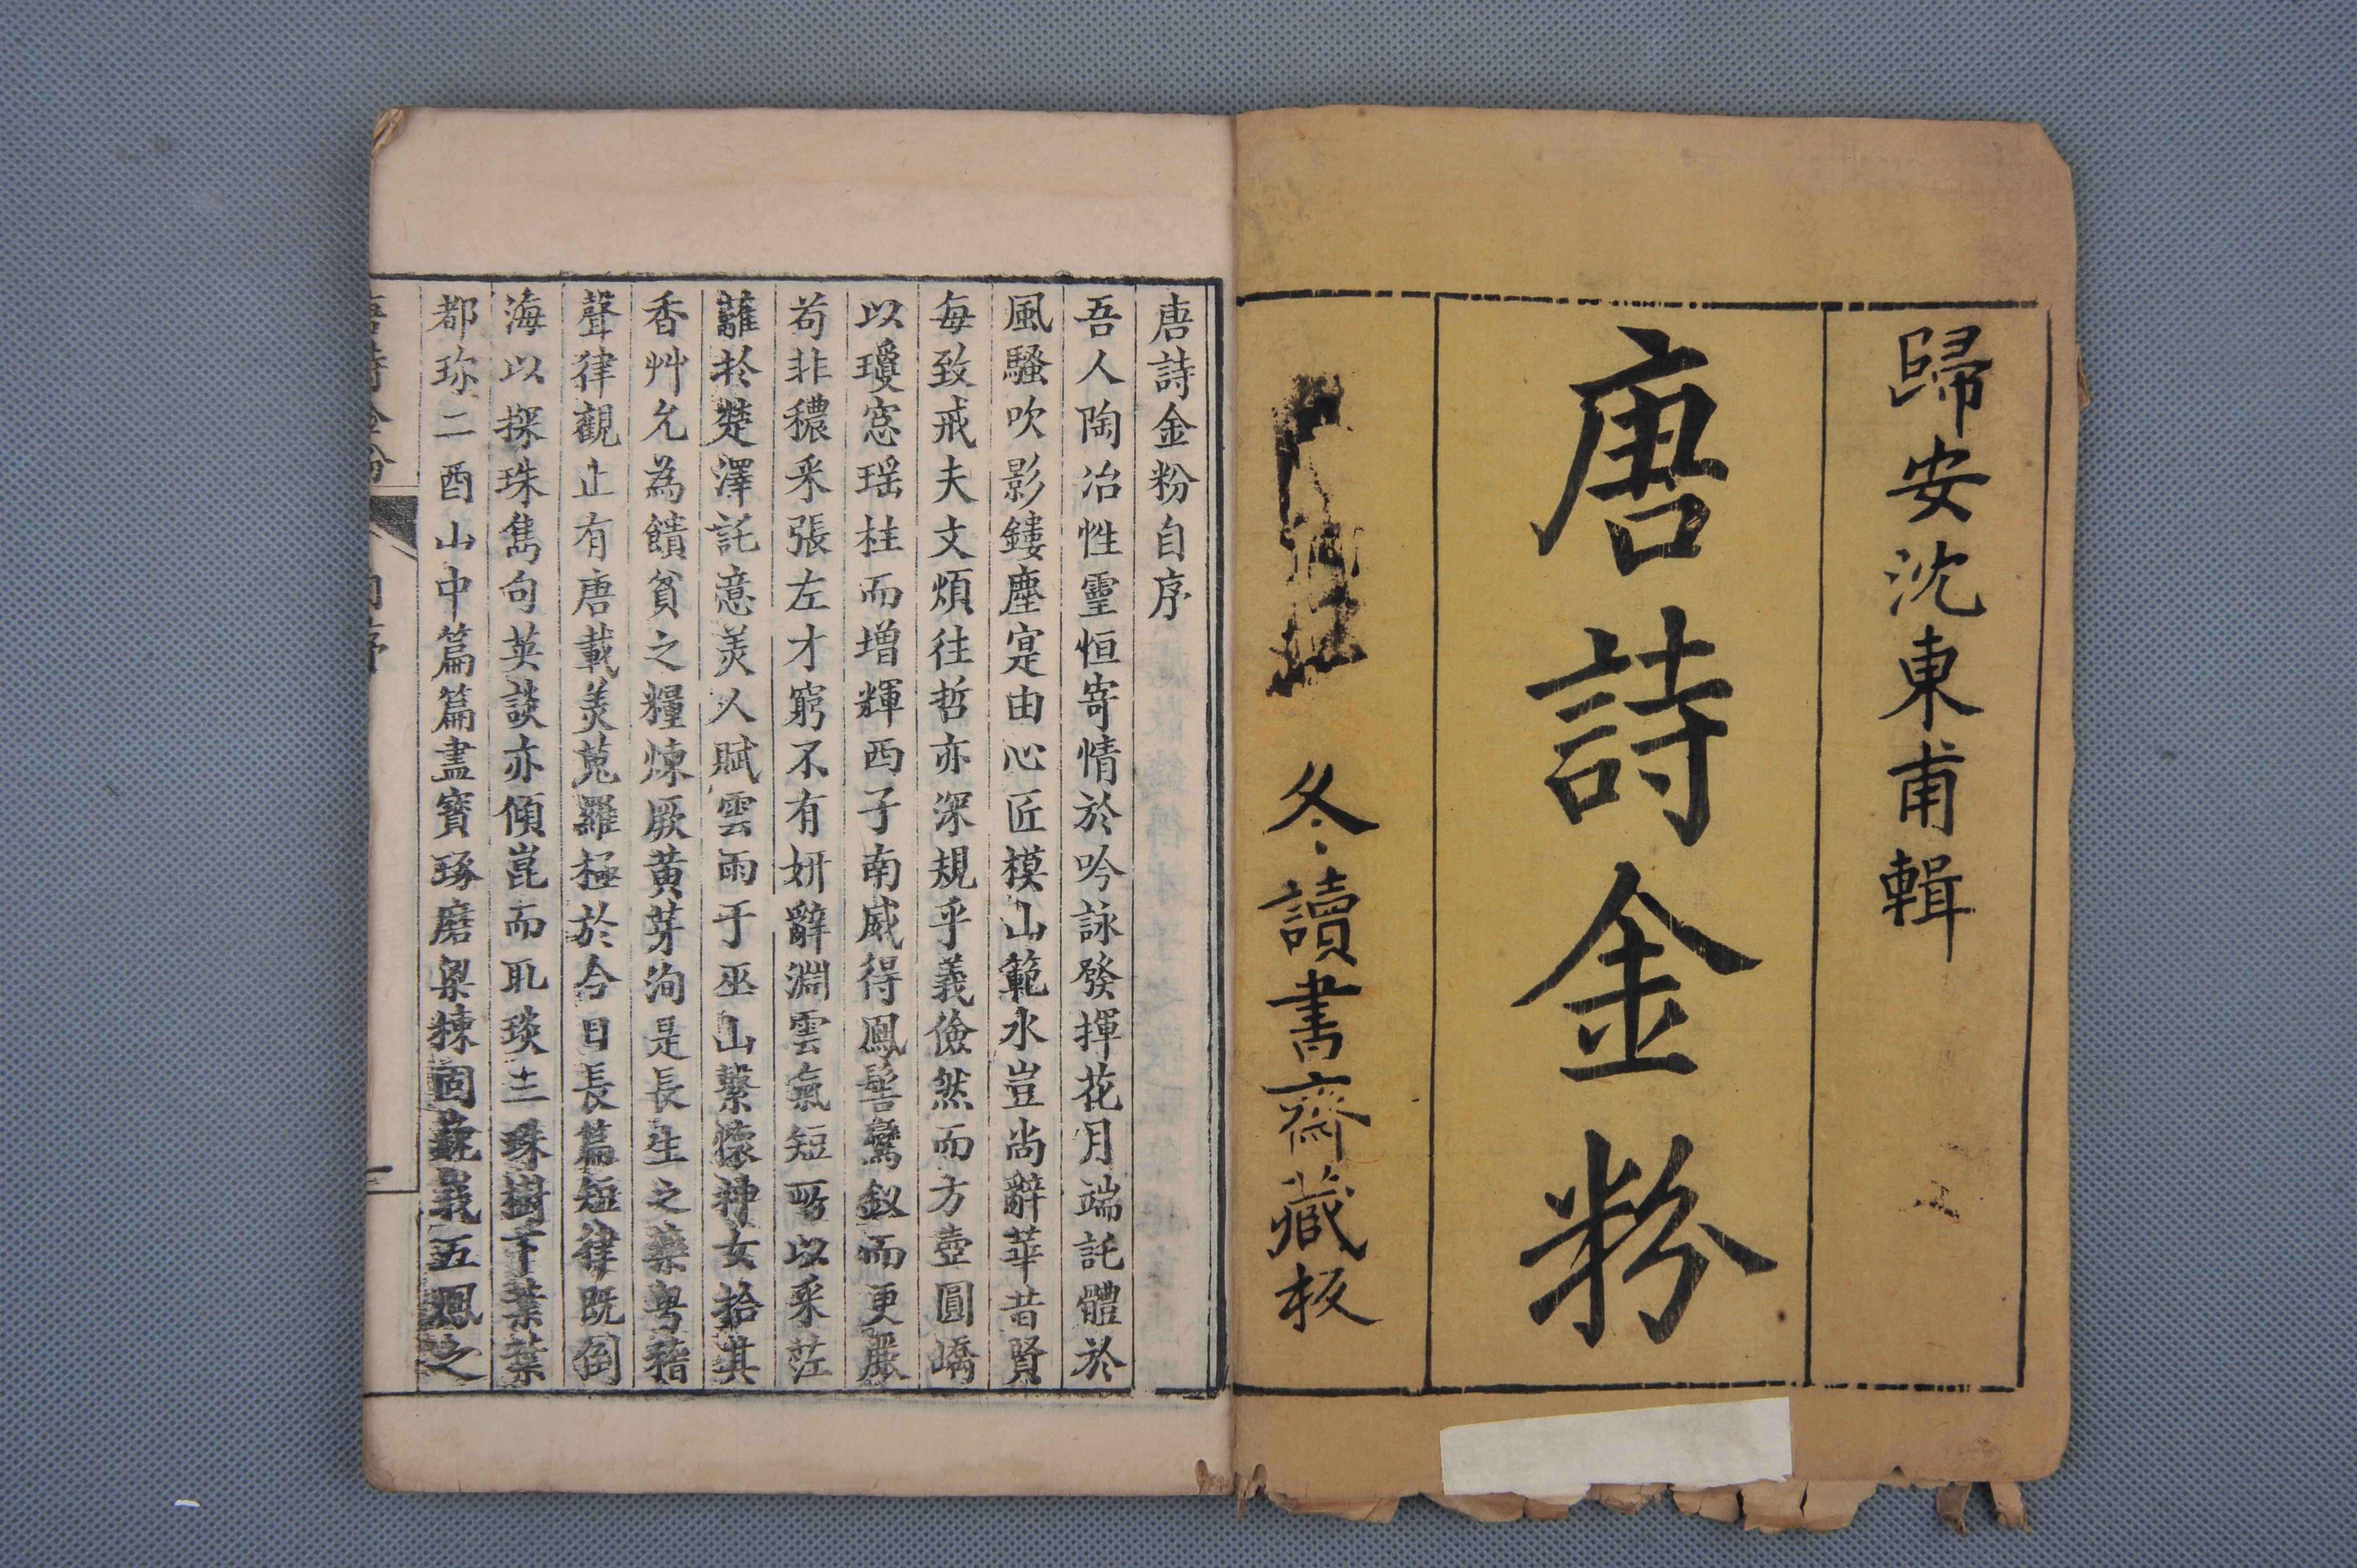 歸安沈東甫輯
唐詩金粉
冬讀書齋藏板
唐詩金粉自序
吾人陶冶性靈恒寄情於吟詠發揮花月端託體於
風騷吹影鏤塵寔由心匠模山範水豈尚辭華昔賢
每致戒夫文煩往哲亦深規乎義儉然而方壺圓嶠
以瓊窓瑶柱而增輝西子南威得鳳髻鸞釵而更嚴
苟非穠采張左才窮不有妍辭淵雲氣短所以采茳
蘺於楚澤託意美人賦雲雨于巫山繫懷神女拾其
香艸允為饋貧之糧煉厥黄芽洵是長生之藥粤稽
聲律觀止有唐載美蒐羅極於今日長篇短律既倒
海以探珠雋句英談亦傾崑而取琰三珠樹下葉葉
都珍二酉山中篇篇盡寶琢磨梁棟固義五鳳之
唐詩金粉
自序
一